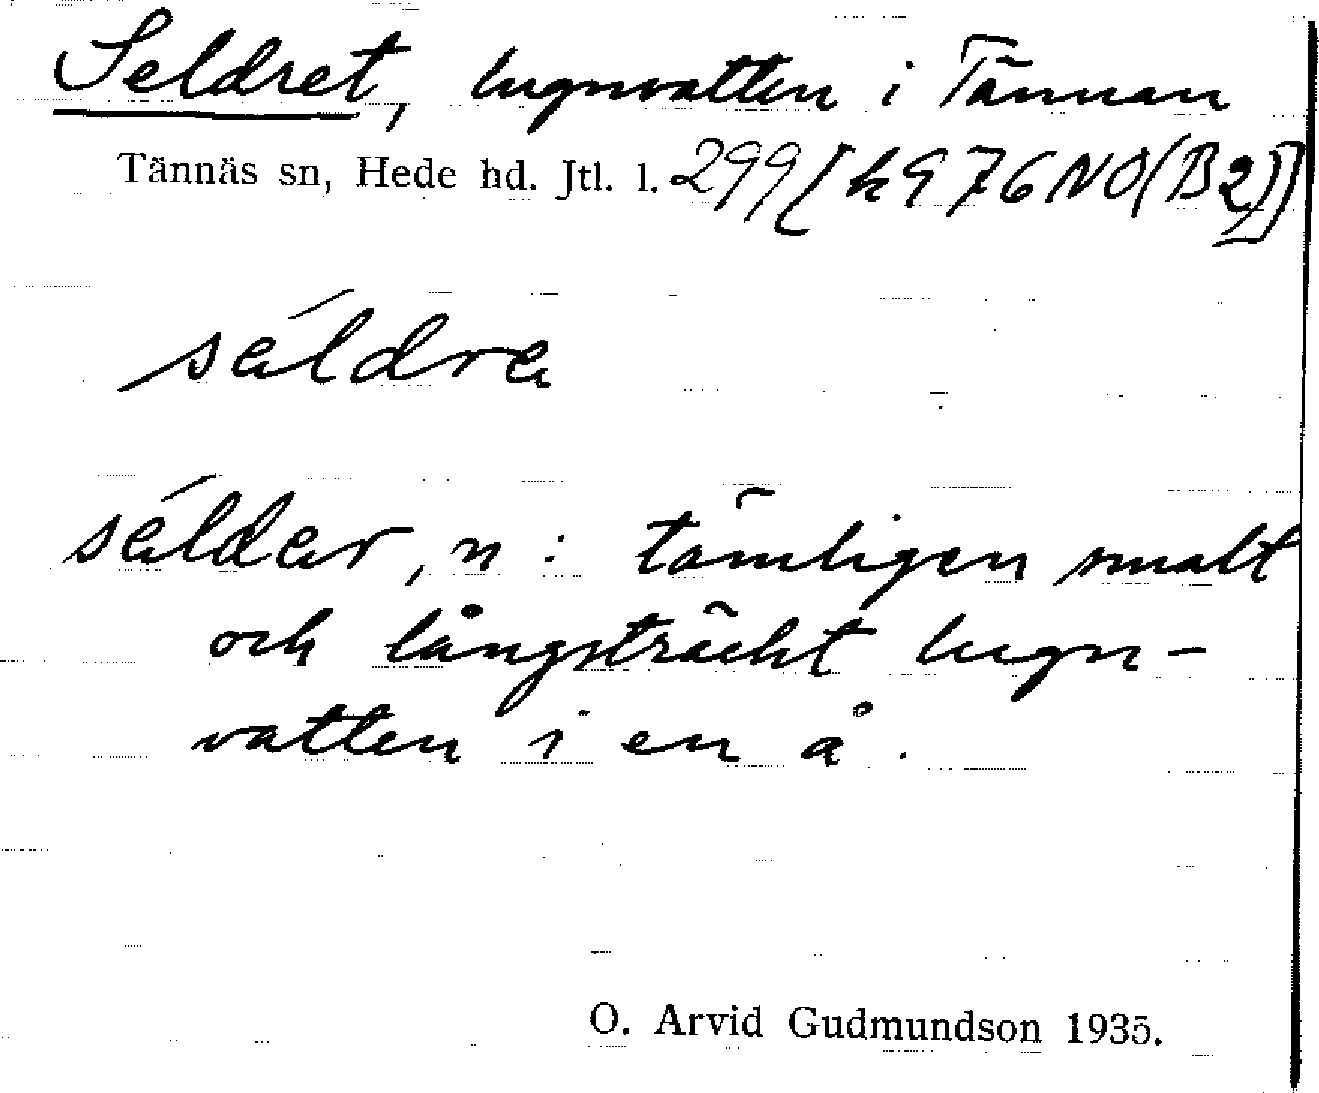 Seldret, lugnvatten i Tännan
Tännäs sn, Hede hd. Jtl. l. 299 [h976NO(B2)]
séldra
séldar, n : tämligen smalt
och långsträckt lugn-
vatten i en å .
O. Arvid Gudmundson 1935.